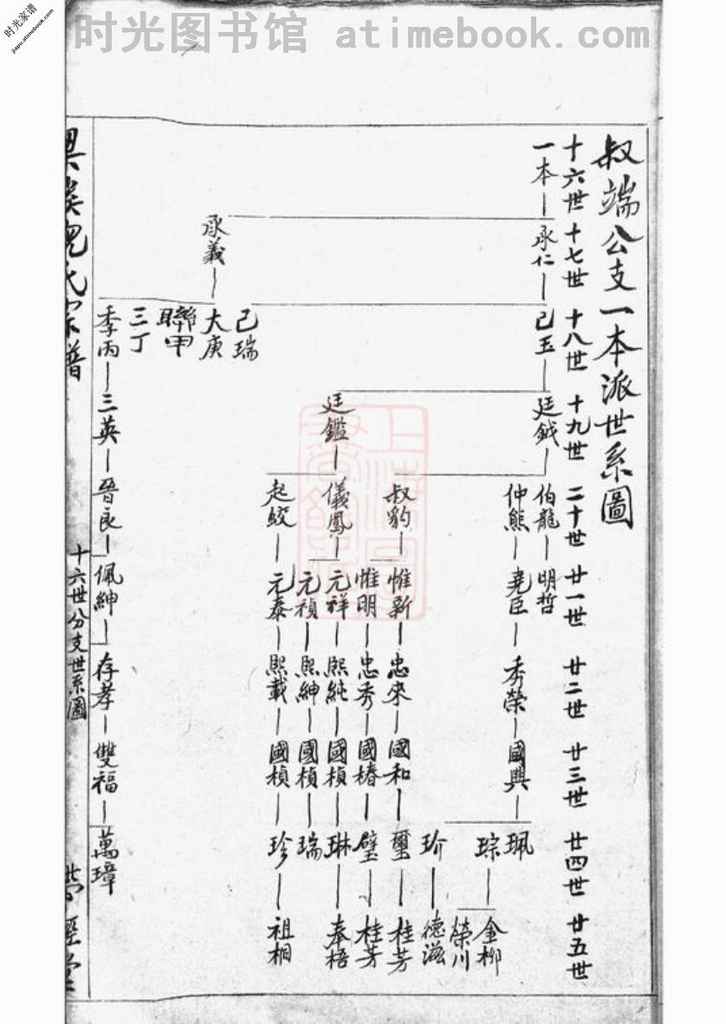 时光图书馆 atimebook.com
时光家谱
jiapu.atimebook.com
叔端公支一本派世系圖
十六世 十七世 十八世 十九世 二十世 廿一世 廿二世 廿三世 廿四世 廿五世
一本 承仁 己玉 廷鉞 伯龍 明哲
仲熊 堯臣 秀榮 國興 珮
琮 金柳
榮川
玠 德滋
叔豹 惟新 忠來 國和 璽 桂芳
惟明 忠秀 國椿 璧 桂芳
廷鑑 儀鳳 元祥 熙純 國楨 琳 奉梧
元禎 熙紳 國楨 瑞
起蛟 元泰 熙載 國楨 珍 祖桐
己瑞
承義 大庚
聯甲
三丁
季丙 三英 晉良 佩紳 存孝 雙福 萬璋
氏宗譜
十六世分支世系圖